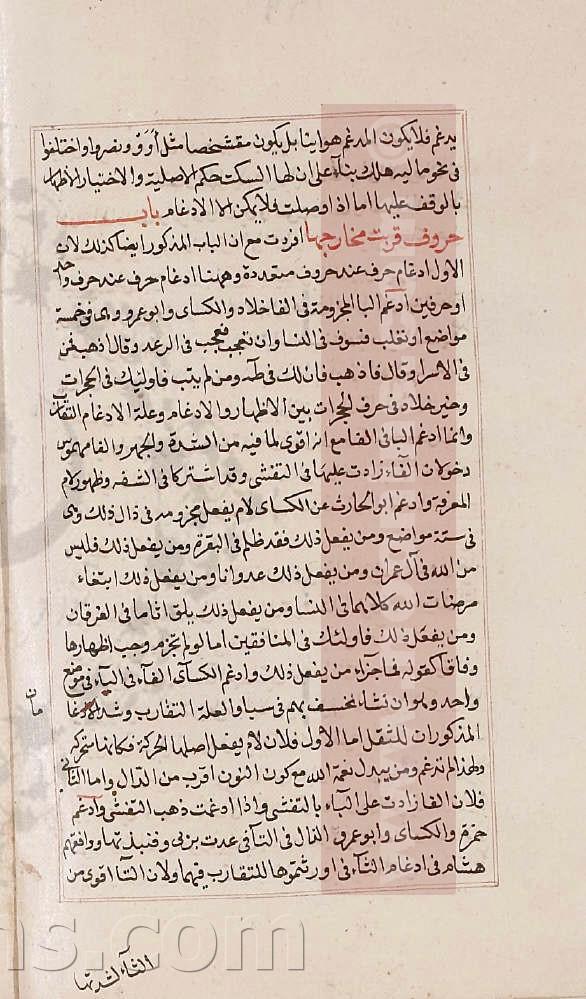 يدغم فلا يكون المدغم هوايئا بل يكون مقتشخصا مثل أووو ونصروا واختلفوا
في نحو ماليه هلك بناء على ان لها السكت حكم الاصلية والاختيار الاظهار
بالوقف عليها اما اذا وصلت فلا يمكن الا الادغام باب
حروف قربت مخارجها افردت مع ان الباب المذكور ايضا كذلك لان
الاول ادغام حرف عند حروف متعددة وههنا ادغام حرف عند حرف واحد
او حرفين ادغم البا المجزومة في الفا خلاد والكساى وابو عمرو وهى في خمسة
مواضع او يغلب فسوف في النسا وان تعجب فعجب في الرعد وقال اذهب فمن
في الاسرا وقال فاذهب فان لك في طه ومن لم يتب فاولئك في الحجرات
وخير خلاد في حرف الحجرات بين الاظهار والادغام وعلة الادغام التقارب
وانما ادغم البا في الفا مع انه اقوى لما فيه من الشدة والجهر والفا مهموس
رخو لان الفآء زادت عليها في التفشى وقد اشتركا في الشفه وظهور لام
المعرفة وادغم ابو الحارث عن الكساى لام يفعل مجزومه في ذال ذلك وهى
في ستة مواضع ومن يفعل ذلك فقد ظلم في البقرة ومن يفعل ذلك فليس
من الله في آل عمران ومن يفعل ذلك عدوانا ومن يفعل ذلك ابتغاء
مرضات الله كلاهما في النسا ومن يفعل ذلك يلق اثاما في الفرقان
ومن يفعل ذلك فاولئك في المنافقين اما لو لم تجزم وجب اظهارها
وفاقا كقوله فما جزاء من يفعل ذلك وادغم الكساى الفآء في البآء في موضع
واحد وهو ان نشاء نخسف بهم في سبا والعلة التقارب وشد الادغا
مان
المذكوران للثقل اما الاول فلان لام يفعل اصلها الحركة فكانها متحركه
ولهذا لم تدغم ومن يبدل نعمة الله مع كون النون اقرب من الذال واما الثاني
فلان الفا زادت على البآء بالتفشى واذا ادغمت ذهب التفشى وآدغم
حمزة والكساى وابو عمرو الذال في التآ في عدت بربى وفنبذتها ووافقهم
هشام في ادغام الثآء في اورثتموها للتقارب فيهما ولان التآ اقوى من
الثآء لشدتها
ns.com